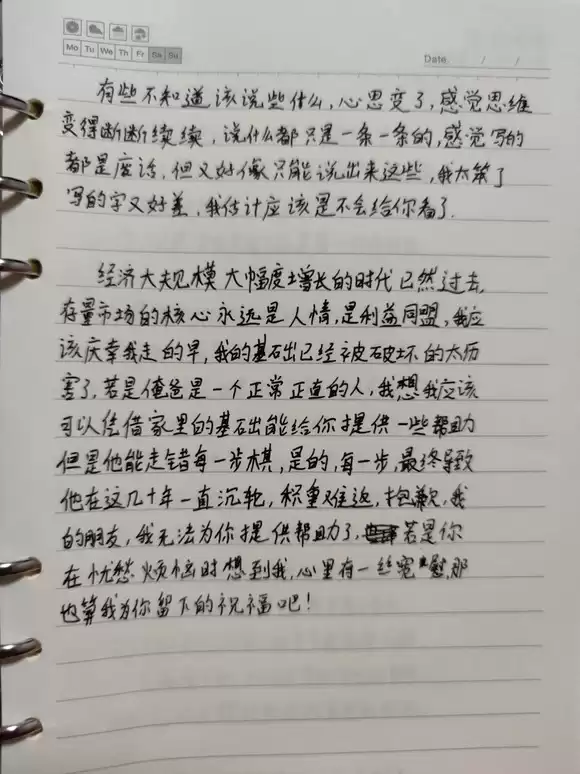 Mo Tu We Th Fr Sa Su
Date / /
有些不知道该说些什么,心思变了,感觉思维
变得断断续续,说什么都只是一条一条的,感觉写的
都是废话,但又好像只能说出来这些,我太笨了
写的字又好差,我估计应该是不会给你看了.
经济大规模大幅度增长的时代已然过去,
存量市场的核心永远是人情,是利益同盟,我应
该庆幸我走的早,我的基础已经被破坏的太厉
害了,若是俺爸是一个正常正直的人,我想我应该
可以凭借家里的基础能给你提供一些帮助
但是他能走错每一步棋,是的,每一步,最终导致
他在这几十年一直沉轮,积重难返,抱歉,我
的朋友,我无法为你提供帮助了,若是你
在忧愁烦恼时想到我,心里有一丝宽慰,那
也算我为你留下的祝福吧!